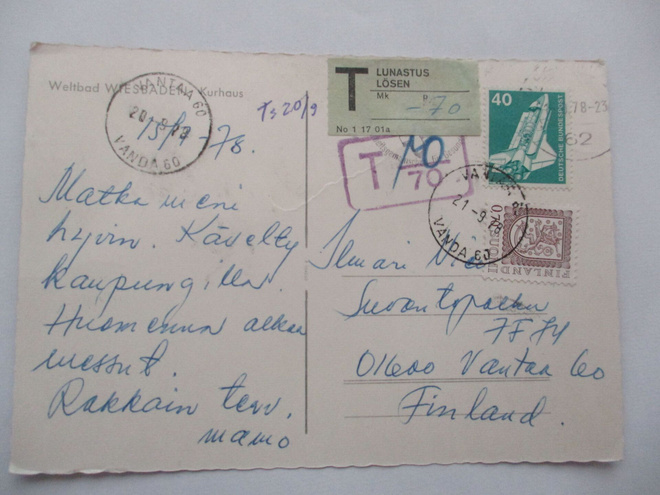 Weltbad WIESBADEN, Kurhaus
VANTAA 60
20.-9.78
VANDA 60
13/9 78.
Ts 20/9
T LUNASTUS
LÖSEN
Mk P
-70
No 1 17 01a
T/70
40
DEUTSCHE BUNDESPOST
78-23
62
VANTAA
21.-9.78
VANDA 60
070
SUOMI
FINLAND
Matka meni
hyvin. Kävelty
kaupungilla.
Huomenna alkaa
messut.
Rakkain terv.
mamo
Ilmari
01600 Vantaa 60
Finland.